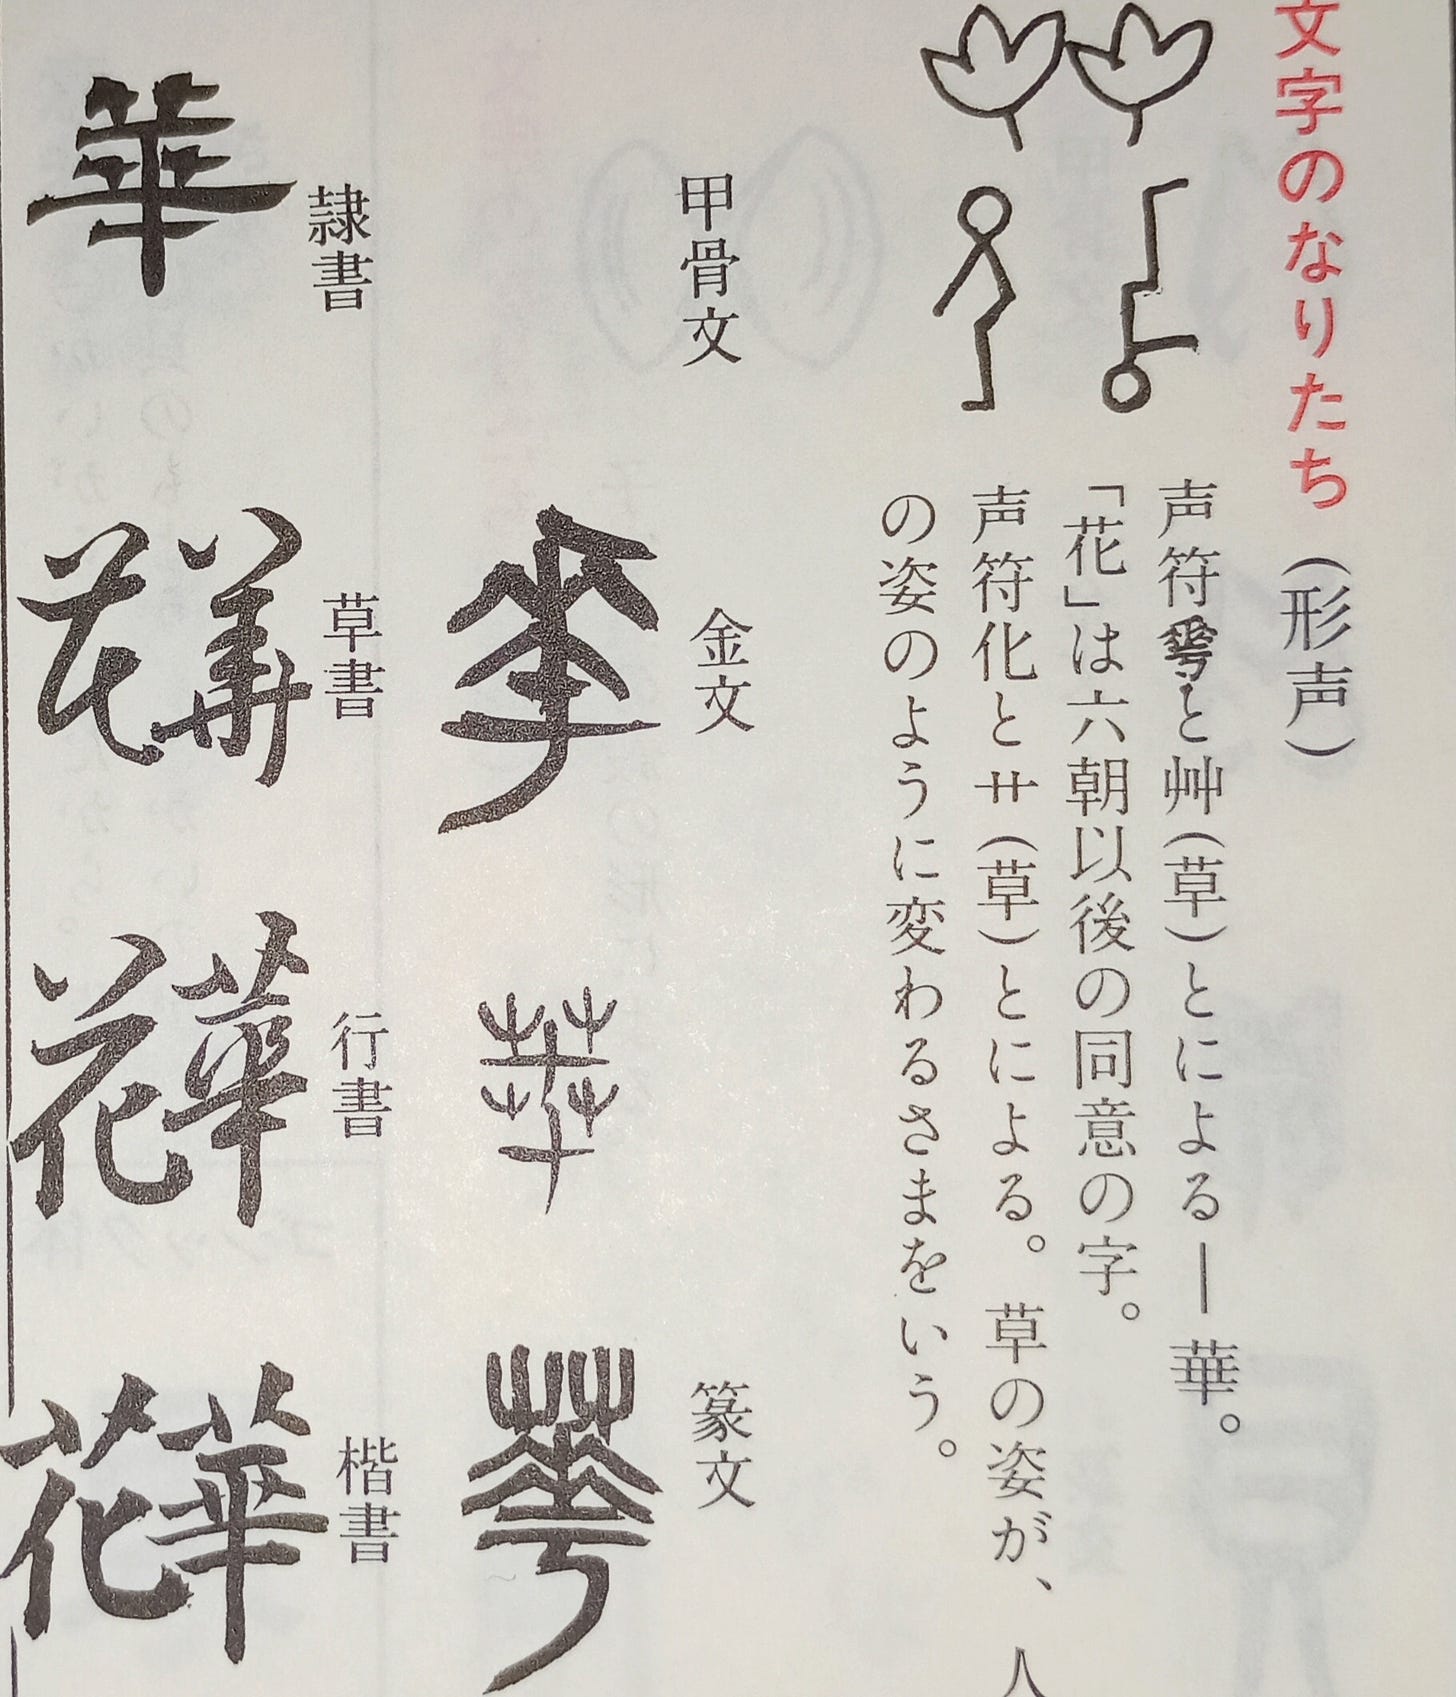 文字のなりたち（形声）
声符𠌶と艸（草）とによる―華。
「花」は六朝以後の同意の字。
声符化と艹（草）とによる。草の姿が、人
の姿のように変わるさまをいう。
甲骨文
金文
篆文
隷書
草書
行書
楷書
華
華
華
華
華
華
華
花
花
花